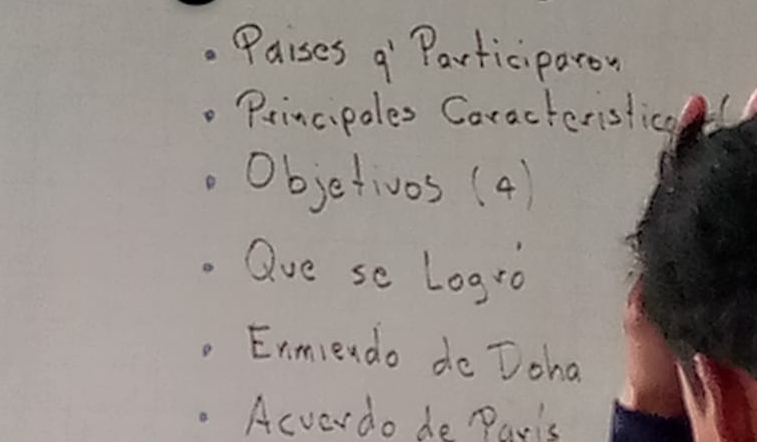 • Paises q' Participaron
• Principales Caracteristica
• Objetivos (4)
• Que se Logró
• Enmienda de Doha
• Acuerdo de París